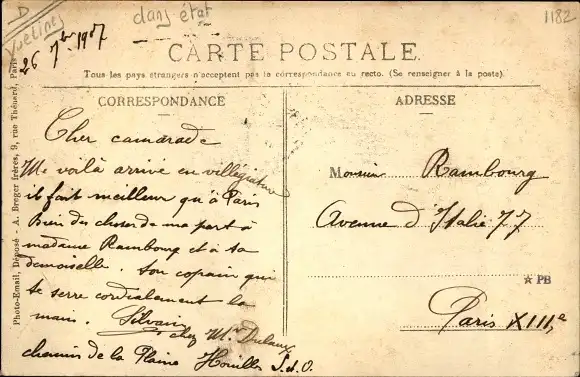 D
Yvelines
dans état
1182
26 7bre 1907
CARTE POSTALE
Tous les pays étrangers n'acceptent pas la correspondance au recto. (Se renseigner à la poste).
CORRESPONDANCE
Cher camarade
Me voilà arrivé en villégiature
il fait meilleur qu'à Paris
Bien des choses de ma part à
madame Rambourg et à sa
demoiselle. ton copain qui
te serre cordialement la
main. Silvain
chez Mr
chemin de la Plaine Houilles S. et O.
ADRESSE
Monsieur Rambourg
Avenue d'Italie 77
PB
Paris XIII,e
Photo-Email, Déposé - A. Breger frères, 9, rue Thénard, Paris